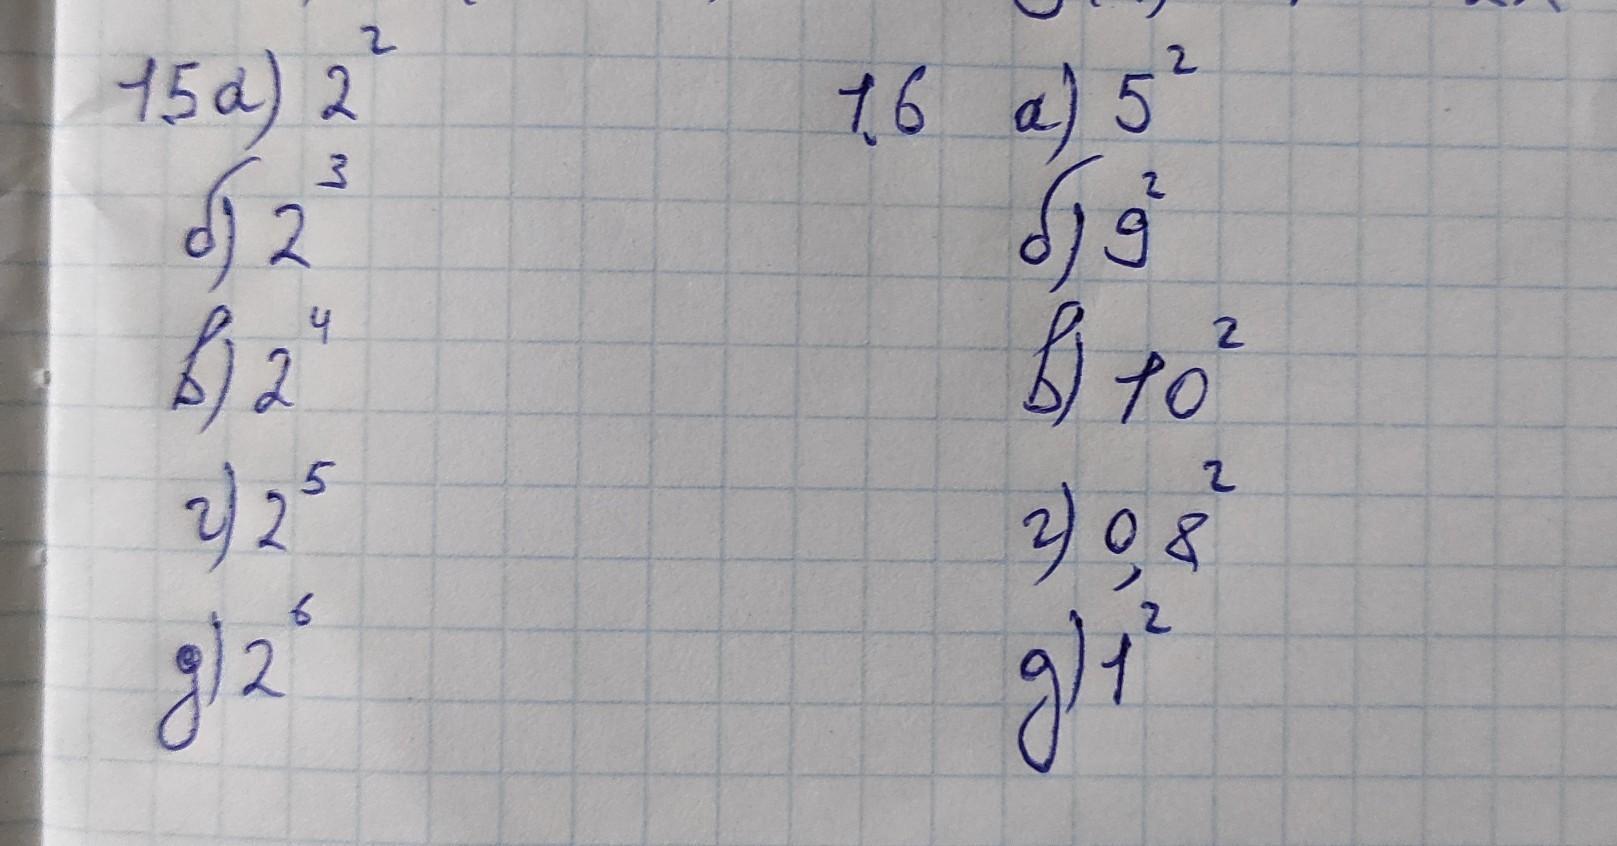 1.5 а) 2²
б) 2³
в) 2⁴
г) 2⁵
д) 2⁶
1.6 а) 5²
б) 9²
в) 10²
г) 0,8²
д) 1²